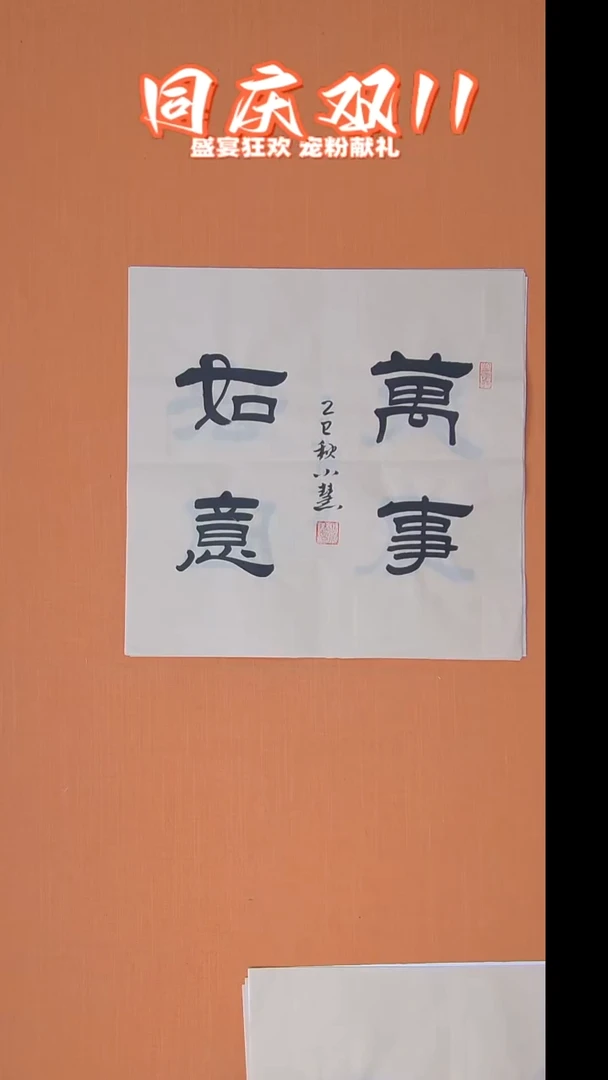 同庆双11
盛宴狂欢 宠粉献礼
萬事
如意
乙巳秋小慧